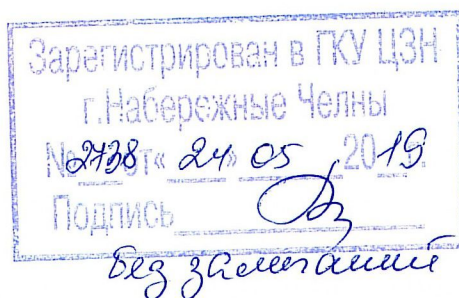 Зарегистрирован в ГКУ ЦЗН
г.Набережные Челны
№ 2738 от « 24 » 05 2019 г.
Подпись
без замечаний